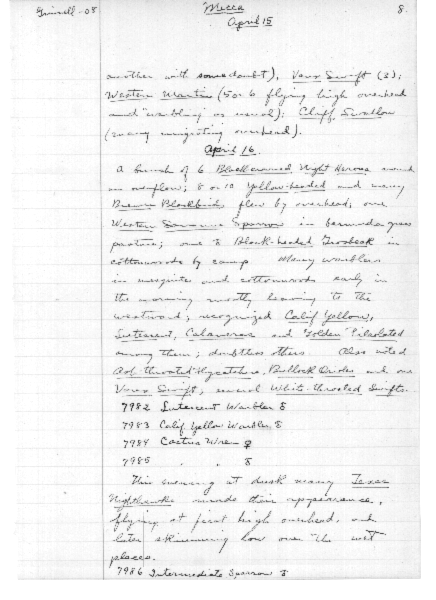 Grinnell-08
Mecca
April 15
8.
another with some doubt), Vaux Swift (2);
Western Martin (5 or 6 flying high overhead
and "warbling" as usual); Cliff Swallow
(many migrating overhead).
April 16.
A bunch of 6 Black-crowned Night Herons
an overflow; 8 or 10 Yellow-headed and many
Brewer Blackbirds flew by overhead; one
Western Savanna Sparrow in bermuda grass
pasture; one ♂ Black-headed Grosbeak in
cottonwoods by camp. Many warblers
in mesquite and cottonwoods early in
the morning mostly leaving to the
westward; recognized Calif Yellow,
Lutescent, Calaveras and Golden Pileolated
among them; doubtless others. Also noted
Ash-throated Flycatcher, Bullock Orioles and one
Vaux Swift, several White-throated Swifts.
7982 Lutescent Warbler ♂
7983 Calif Yellow Warbler ♂
7984 Cactus Wren ♀
7985 " " ♂
This evening at dusk many Texas
Nighthawks made their appearance,
flying at first high overhead, and
later skimming low over the wet
places.
7986 Intermediate Sparrow ♂